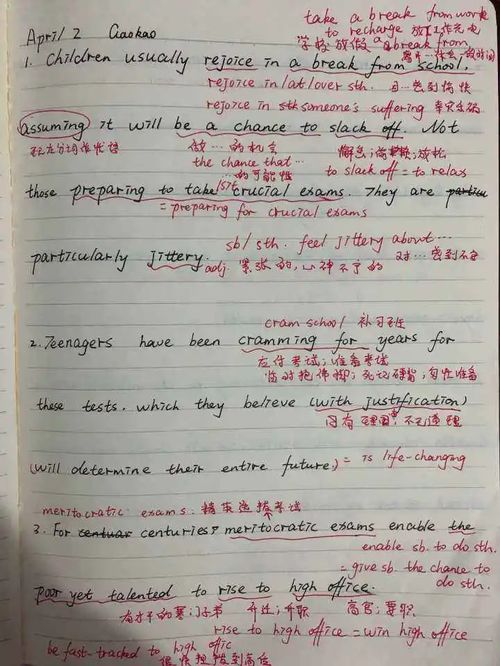 take a break from work
to recharge 放下工作充电
April 2 Gaokao
学校放假 a break from
1. Children usually rejoice in a break from school,
rejoice in/at/over sth. 因…感到愉快
rejoice in sth someone's suffering 幸灾乐祸
assuming it will be a chance to slack off. Not
现在分词作状语 做…的机会 懈怠;偷懒;放松
the chance that… to slack off = to relax
…的可能性
those preparing to take/sit crucial exams. They are
= preparing for crucial exams
sb/sth. feel jittery about…
particularly jittery.
adj. 紧张的,心神不宁的 对…感到不安
cram school/ 补习班
2. Teenagers have been cramming for years for
应付考试;准备考试
临时抱佛脚;死记硬背;匆忙准备
these tests, which they believe (with justification)
因有理由,不无道理
(will determine their entire future.) = is life-changing
meritocratic exams: 精英选拔考试
3. For centuries, meritocratic exams enable the
enable sb. to do sth.
= give sb. the chance to
do sth.
poor yet talented to rise to high office.
有才干的寒门子弟 升迁;升职 高官;要职
rise to high office = win high office
be fast-tracked to high office
很快提拔到高位